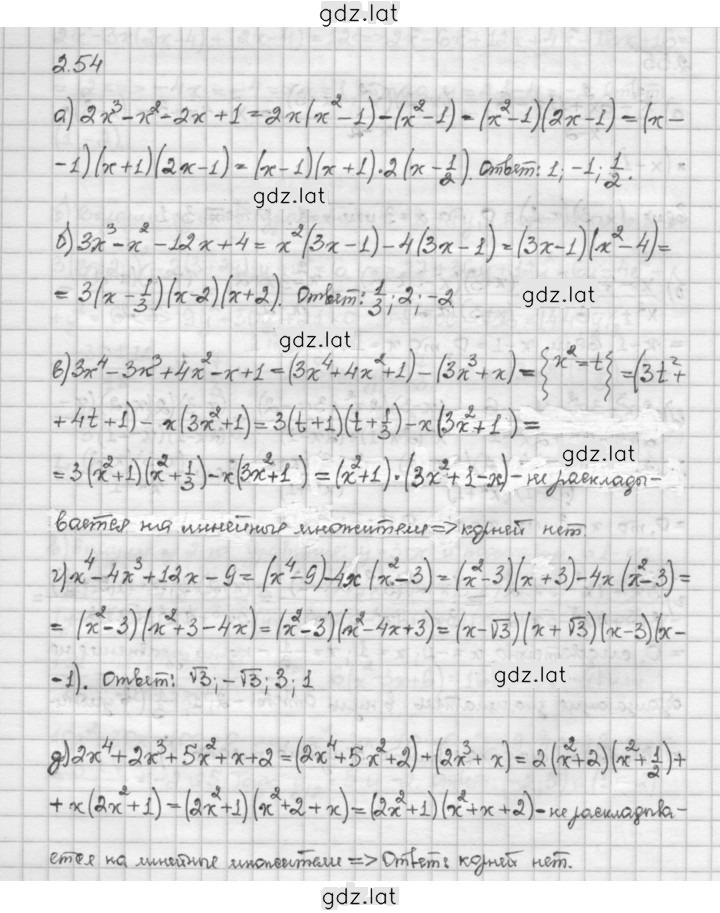 gdz.lat
2.54
а) 2x³-x²-2x+1=2x(x²-1)-(x²-1)=(x²-1)(2x-1)=(x-
-1)(x+1)(2x-1)=(x-1)(x+1)·2(x-1/2). Ответ: 1; -1; 1/2.
gdz.lat
б) 3x³-x²-12x+4= x²(3x-1)-4(3x-1)=(3x-1)(x²-4)=
=3(x-1/3)(x-2)(x+2). Ответ: 1/3; 2; -2
gdz.lat
gdz.lat
в) 3x⁴-3x³+4x²-x+1=(3x⁴+4x²+1)-(3x³+x)={x²=t}=(3t²+
+4t+1)-x(3x²+1)=3(t+1)(t+1/3)-x(3x²+1)=
gdz.lat
=3(x²+1)(x²+1/3)-x(3x²+1)=(x²+1)·(3x²+1-x)-не расклады-
вается на линейные множители=>корней нет.
г) x⁴-4x³+12x-9=(x⁴-9)-4x(x²-3)=(x²-3)(x+3)-4x(x²-3)=
=(x²-3)(x²+3-4x)=(x²-3)(x²-4x+3)=(x-√3)(x+√3)(x-3)(x-
-1). Ответ: √3; -√3; 3; 1
gdz.lat
д) 2x⁴+2x³+5x²+x+2=(2x⁴+5x²+2)+(2x³+x)=2(x²+2)(x²+1/2)+
+x(2x²+1)=(2x²+1)(x²+2+x)=(2x²+1)(x²+x+2)-не раскладыва-
ется на линейные множители=>Ответ: корней нет.
gdz.lat